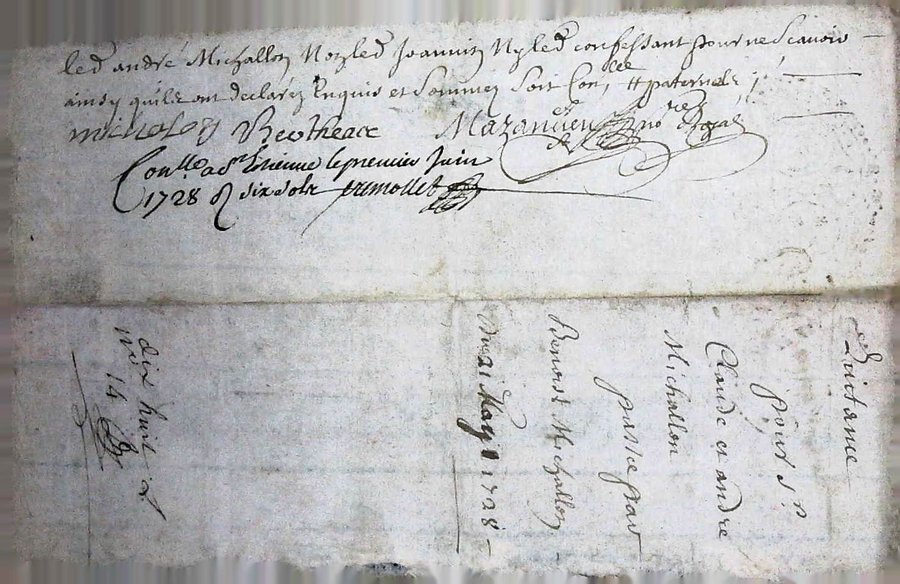 led andré Michallon Ny led Joannin Ny led confessant pour ne scavoir
ainsy quils ont declaréz Enquis et Sommez Soit Con^lée # paternels /
michalon Bertheace Mazancieu no^re Royal
Con^llé a S^t Estienne le premier Juin
1728 R six sols tremollet
Quictance
pour S^r
Claude et andré
Michallon
passée par
Benoist Michallon
Du 21 May 1728
dix huit
14